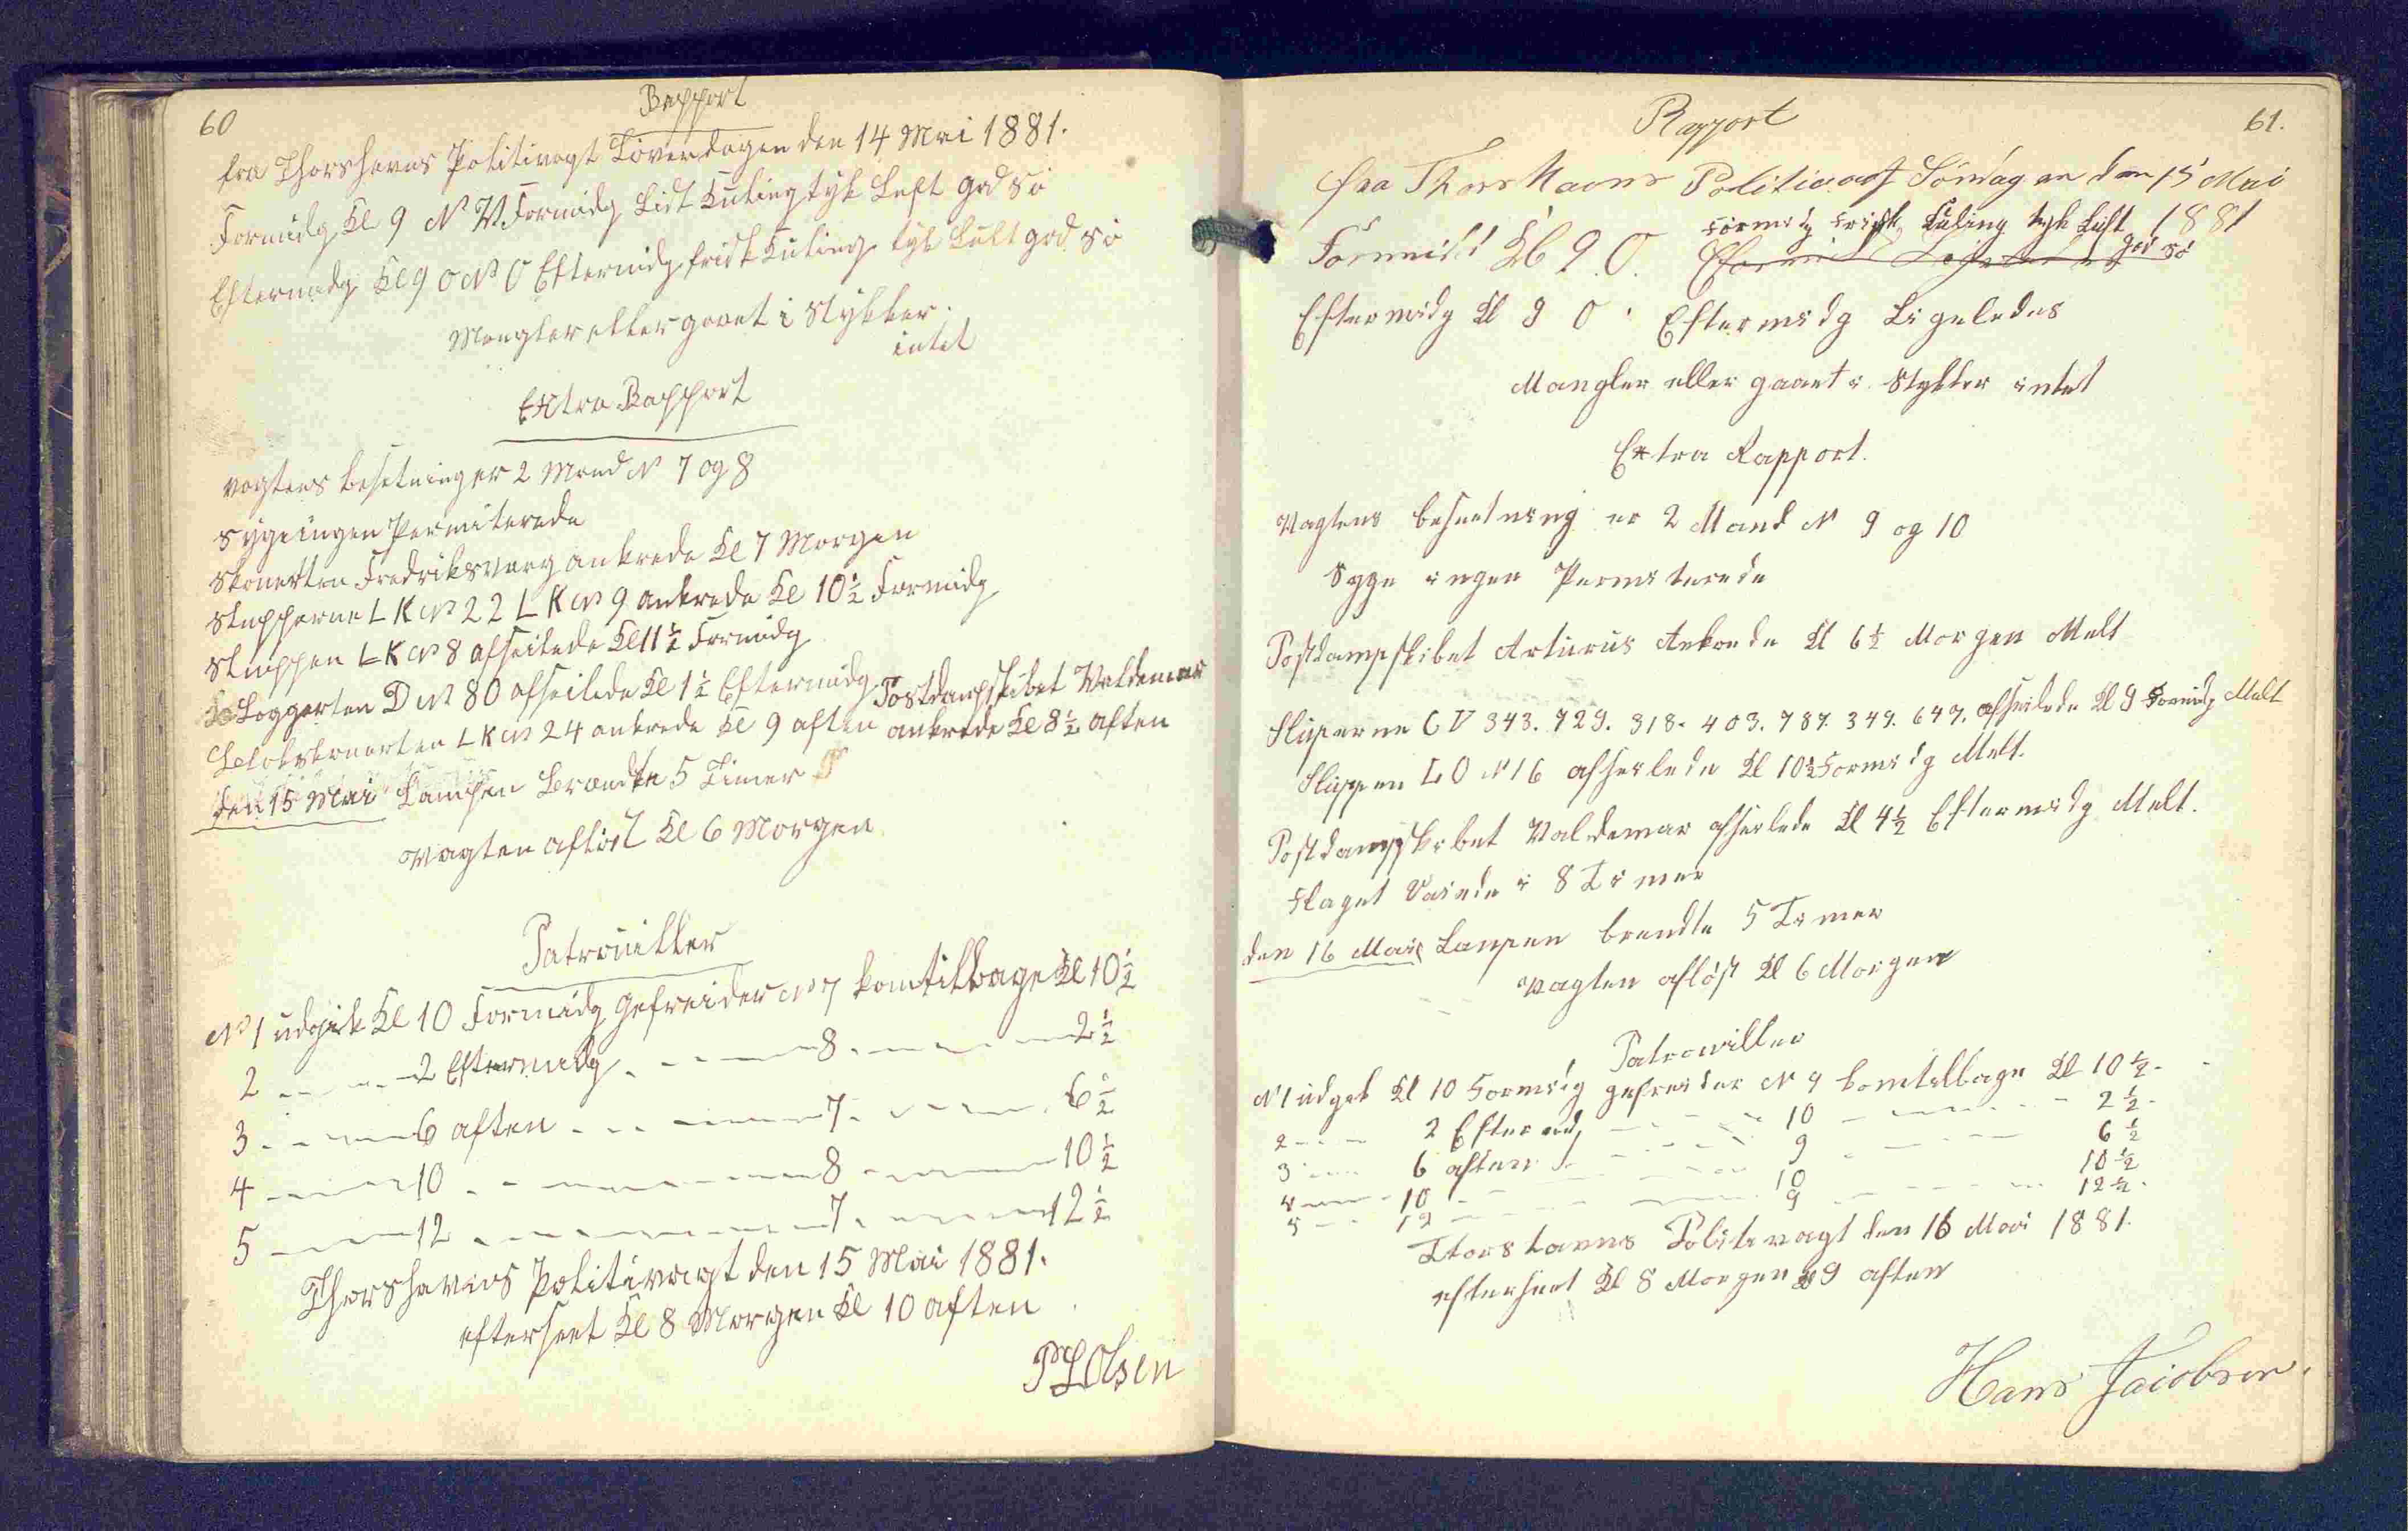 60
Rapport
fra Thorshavns Politivagt Löverdagen den 14 Mai 1881.
Formidg Kl 9 N V. Formidg Lidt Kuling tyk Luft god Sö
Eftermidg Kl 9 O N O Eftermidg frisk Kuling tyk Luft god Sö
Mangler eller gaaet i Stykker.
intet
Extra Rapport
Vagtens besetning er 2 Mand N 7 og 8
Syge ingen Permiterede
Skonerten Fredriksvaag ankrede Kl 7 Morgen
Slupperne L K N 22 L K N 9 ankrede Kl 10½ Formidg
Sluppen L K N 8 afseilede Kl 11½ Formidg
Loggerten D N 80 afseilede Kl 1½ Eftermidg Postdampskibet Valdemar
Skonerten L K N 24 ankrede Kl 9 aften ankrede Kl 8½ aften
den 15 Mai Lampen Brændte 5 Timer
Vagten aflöst Kl 6 Morgen
Patrouiller
N 1 udgik Kl 10 Formidg gefreider N 7 kom tilbage Kl 10½
2 - - - 2 Eftermidg - - - 8 - - - 2½
3 - - - 6 aften - - - 7 - - - 6½
4 - - - 10 - - - 8 - - - 10½
5 - - - 12 - - - 7 - - - 12½
Thorshavns Politivagt den 15 Mai 1881.
efterseet Kl 8 Morgen Kl 10 aften
Olsen
61.
Rapport
fra Thorshavns Politivagt Söndagen den 15 Mai
1881
Formidg frisk Kuling tyk Luft
god Sö
Formidd Kl 9 O.
Eftermidg Kl 9 O. Eftermidg Ligeledes
Mangler eller gaaet i Stykker intet
Extra Rapport.
Vagtens besætning er 2 Mand N 9 og 10
Syge ingen Permiterede
Postdampskibet Arturus Ankrede Kl 6½ Morgen Melt
Sluperne C V 343. 729. 318. 403. 787. 349. 647. afseilede Kl 9 Formidg Melt
Sluppen L O N 16 afseilede Kl 10½ Formidg Melt.
Postdampskibet Valdemar afseilede Kl 4½ Eftermidg Melt.
Flaget Vaiede i 8 Timer
den 16 Mai Lampen brendte 5 Timer
Vagten aflöst Kl 6 Morgen
Patrouiller
N 1 udgik Kl 10 Formidg gefreider N 9 kom tilbage Kl 10½.
2 - - - 2 Eftermd - - - 10 - - - 2½.
3 - - - 6 aften - - - 9 - - - 6½
4 - - - 10 - - - 10 - - - 10½
5 - - - 12 - - - 9 - - - 12½.
Thorshavns Politivagt den 16 Mai 1881.
efterseet Kl 8 Morgen Kl 9 aften
Hans Jacobsen.